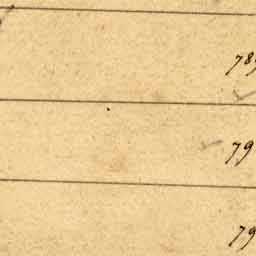 789
79
79